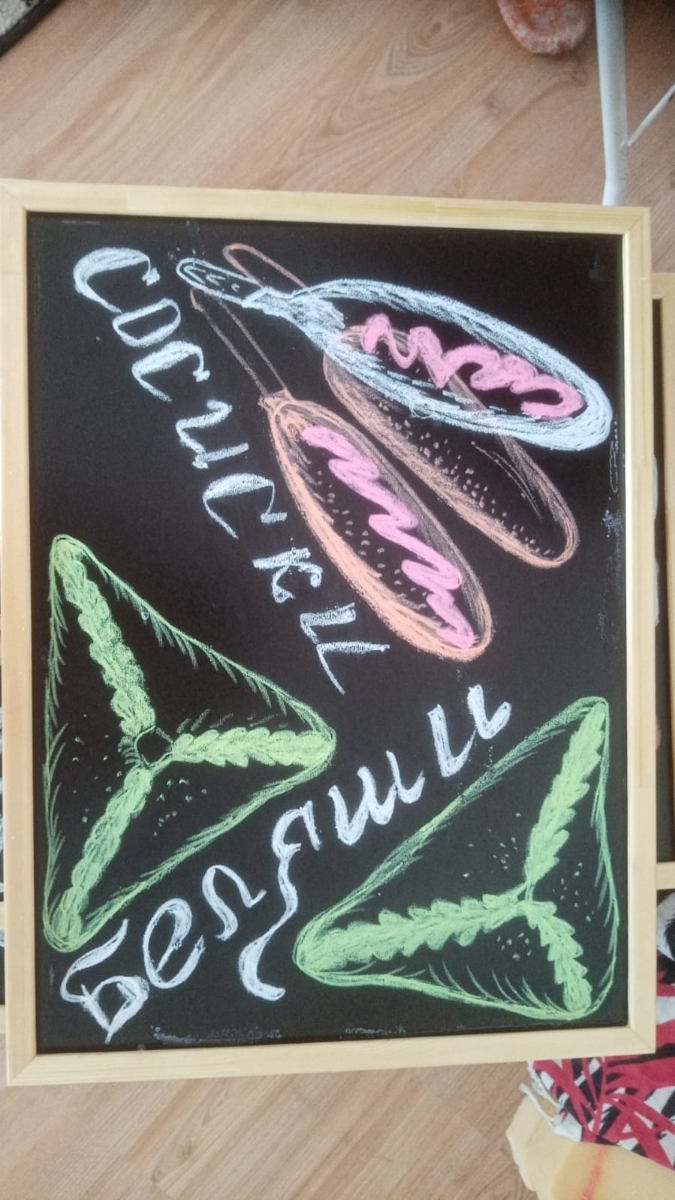 Сосиски
Беляши